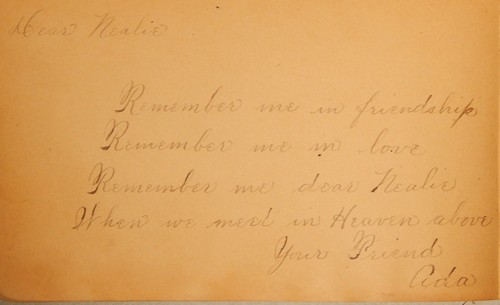 Dear Nealie
Remember me in friendship
Remember me in love
Remember me dear Nealie
When we meet in Heaven above
Your Friend
Ada